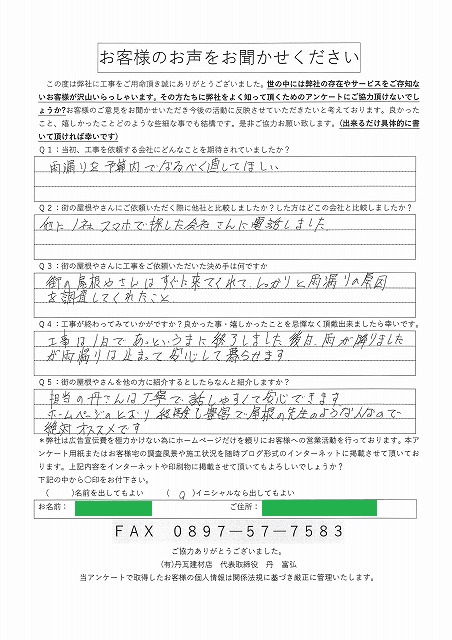 お客様のお声をお聞かせください
この度は弊社に工事をご用命頂き誠にありがとうございました。世の中には弊社の存在やサービスをご存知な
いお客様が沢山いらっしゃいます。その方たちに弊社をよく知って頂くためのアンケートにご協力頂けないでし
ょうか?お客様のご意見をお聞かせいただき今後の活動に反映させていただきたいと考えております。良かった
こと、嬉しかったことどのような些細な事でも結構です。是非ご協力お願い致します。(出来るだけ具体的に書
いて頂ければ幸いです)
Q1:当初、工事を依頼する会社にどんなことを期待されていましたか?
雨漏りを予算内でなるべく直してほしい
Q2:街の屋根やさんにご依頼いただく際に他社と比較しましたか?した方はどこの会社と比較しましたか?
他に1社スマホで探した会社さんに電話しました
Q3:街の屋根やさんに工事をご依頼いただいた決め手は何ですか
街の屋根やさんはすぐに来てくれて、しっかりと雨漏りの原因
を調査してくれたこと
Q4:工事が終わってみていかがですか?良かった事・嬉しかったことを忌憚なく頂戴出来ましたら幸いです。
工事は1日であっというまに終了しました 後日、雨が降りました
が雨漏りは止まって安心して暮らせます
Q5:街の屋根やさんを他の方に紹介するとしたらなんと紹介しますか?
担当の丹さんは丁寧で話しやすくて安心できます
ホームページのとおり経験も豊富で屋根の先生のような人なので
絶対オススメです
*弊社は広告宣伝費を極力かけない為にホームページだけを頼りにお客様への営業活動を行っております。本ア
ンケート用紙またはお客様宅の調査風景や施工状況を随時ブログ形式のインターネットに掲載させて頂いてお
ります。上記内容をインターネットや印刷物に掲載させて頂いてもよろしいでしょうか?
下記の中から〇印をお付下さい。
( )名前を出してもよい ( 〇 )イニシャルなら出してもよい
お名前: ご住所:
FAX 0897-57-7583
ご協力ありがとうございました。
(有)丹瓦建材店 代表取締役 丹 富弘
当アンケートで取得したお客様の個人情報は関係法規に基づき厳正に管理いたします。